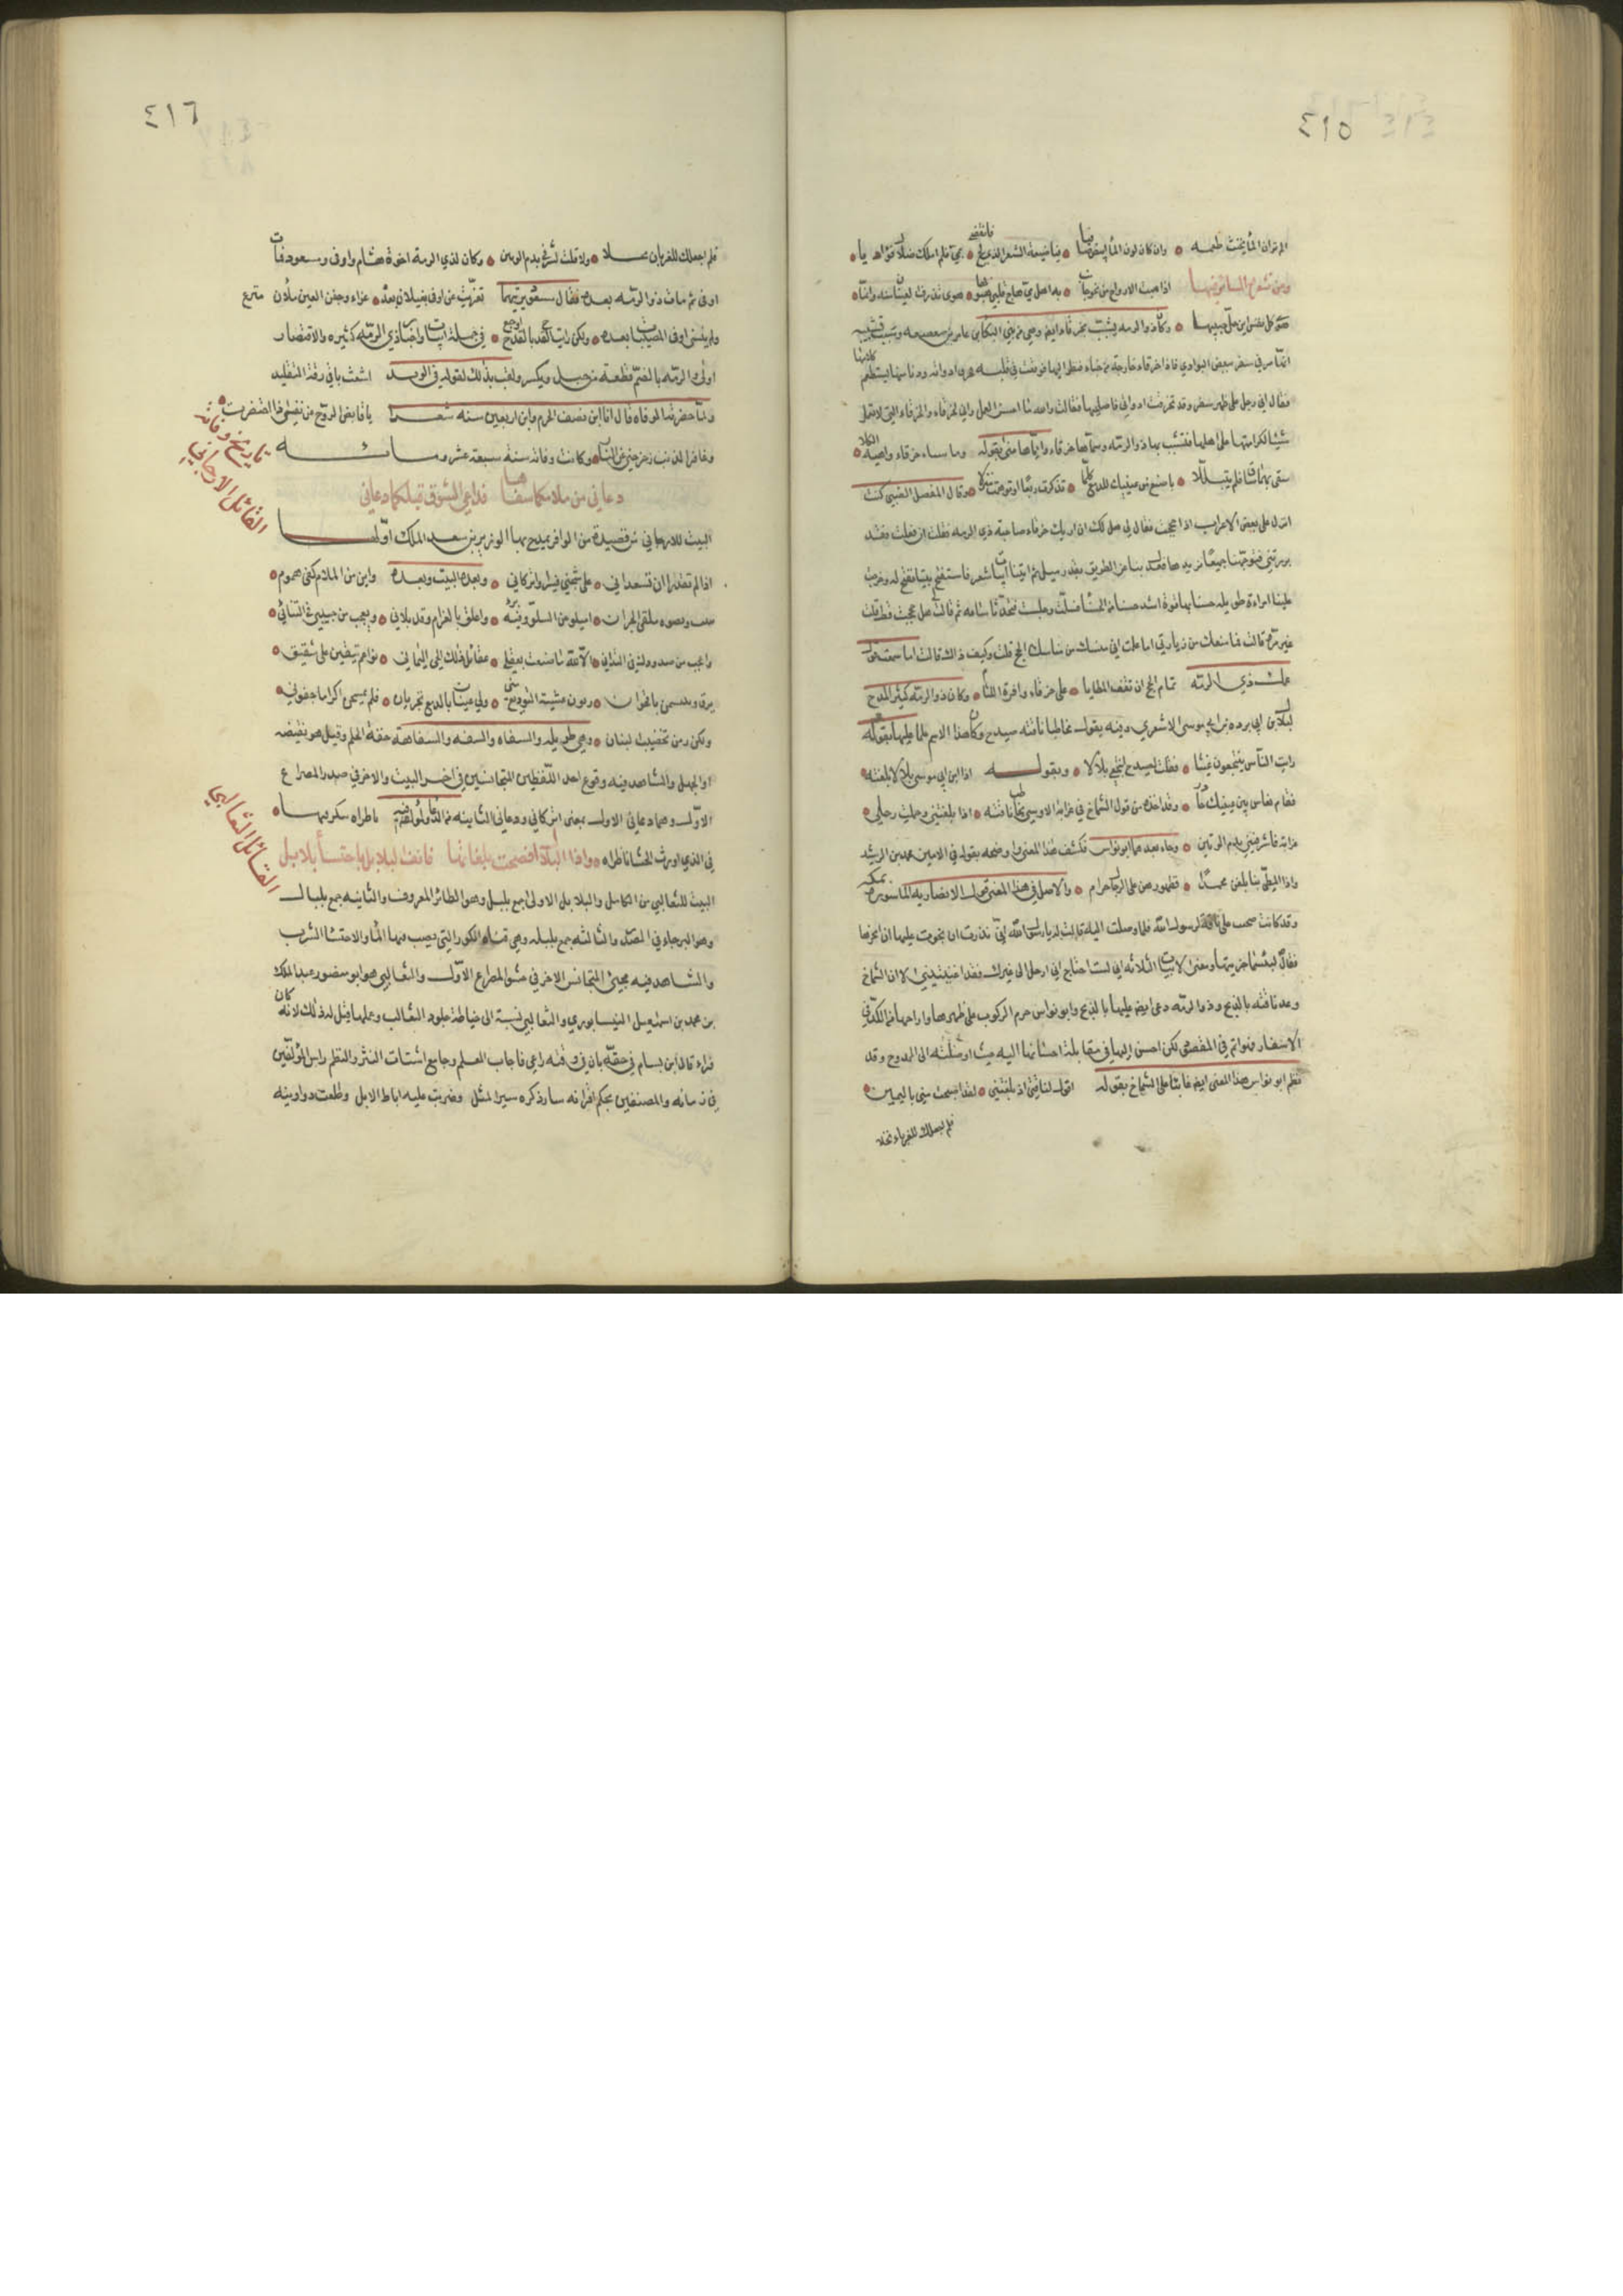 ٤١٥
الم تر ان الماء يخبث طعمه وان كان لون الماء ابيض صافيا فيا ضيعة الشعر الذي لج فانقضى بمي فلم املك ضلال فؤاديا
ومن شعره السائر فيها اذا هبت الارواح من نحو جانب به اهل مي هاج قلبي هبوبها هوى تذرف العينان منه وانما
هوى كل نفس اين حل حبيبها وكان ذو الرمه يشبب بخرقاء ايضا وهي من بني البكاء بن عامر بن صعصعه وسبب تشبيبه
انه مر في سفر ببعض البوادي فاذا خرقاء خارجة من خباء فنظر اليها فوقعت في قلبه فخرق اداوته ودنا منها يستطعم كلامها
فقال اني رجل على ظهر سفر وقد تخرقت اداوتي فاصلحيها فقالت والله ما احسن العمل واني لخرقاء والخرقاء التي لا تعمل
شيئا لكرامتها على اهلها فشبب بها ذو الرمه وسماها خرقاء واياها عنى بقوله وما شنتا خرقاء واهيه الكلا
سقى بهما ساق فلم يتبللا باضيع من عينيك للدمع كلما تذكرت ربعا او توهمت منزلا وقال المفضل الضبي كنت
انزل على بعض الاعراب اذا حججت فقال لي هل لك ان اريك خرقاء صاحبة ذي الرمه فقلت ان فعلت فقد
بررتني فتوجهنا جميعا نريدها فعدل بنا عن الطريق بقدر ميل ثم اتينا ابيات شعر فاستفتح بيتا ففتح له وخرجت
علينا امراة طويله حسانه بها قوة اشد حسنا من الحسنا فسلمت وجلست فتحدثنا ساعه ثم قالت هل حججت قط قلت
غير مرة قالت فما منعك من زيارتي اما علمت اني منسك من مناسك الحج قلت وكيف ذاك قالت اما سمعت قول
عمك ذي الرمه تمام الحج ان تقف المطايا على خرقاء واضعة اللثام وكان ذو الرمه كثير المدح
لبلال بن ابي برده بن ابي موسى الاشعري وفيه يقول مخاطبا ناقته صيدح وكان هذا الاسم علما عليها بقوله
رايت الناس ينتجعون غيثا فقلت لصيدح انتجعي بلالا وبقوله اذا ابن ابي موسى بلالا بلغته
فقام بفاس بين وصليك جازر وقد اخذه من قول الشماخ في عرابة الاوسي يخاطب ناقته اذا بلغتني وحملت رحلي
عرابة فاشرقي بدم الوتين وجاء بعدهما ابو نواس فكشف هذا المعنى واوضحه بقوله في الامين محمد بن الرشيد
واذا المطي بنا بلغن محمدا فظهورهن على الرجال حرام والاصل في هذا المعنى قول الانصاريه الماسورة بمكه
وقد كانت نجت على ناقة لرسول الله فلما وصلت اليه قالت له يا رسول الله اني نذرت ان نجوت عليها ان انحرها
فقال لبئسما جزيتها ومعنى الابيات الثلاثه اني لست احتاج اني ارحل الى غيرك فقد اغنيتيني الا ان الشماخ
وعد ناقته بالذبح وذو الرمه دعى ايضا عليها بالذبح وابو نواس حرم الركوب على ظهرها واراحها من الكد في
الاسفار فهو اتم في المقصود لكن احسن اليها في مقابلة احسانها اليه حيث اوصلته الى الممدوح وقد
نظم ابو نواس هذا المعنى ايضا عايبا على الشماخ بقوله اقول لناقتي اذ بلغتني لقد اصبحت مني باليمين
فلم اجعلك للغربان نحلا
٤١٦
فلم اجعلك للغربان نحلا ولا قلت اشرقي بدم الوتين وكان لذي الرمه اخوة هشام واوفى ومسعود فمات
اوفى ثم مات ذو الرمه بعده فقال مسعود يرثيهما تعزيت عن اوفى بغيلان بعده عزاء وجفن العين ملان مترع
ولم ينسني اوفى المصيبات بعده ولكن نكاء القرح بالقرح اوجع في جملة ابيات واخبار ذي الرمه كثيره والاقتصار
اولى والرمه بالضم قطعة من حبل ويكسر ولقب بذلك لقوله في الوتد اشعث باقي رمة التقليد
ولما حضرته الوفاه قال انا ابن نصف الهرم وابن اربعين سنه شعر يا قابض الروح من نفسي اذا احتضرت
وغافر الذنب زحزحني عن النار وكانت وفاته سنة سبعة عشر ومائه
تاريخ وفاته
القائل الارجاني
دعاني من ملامكما سفاها فداعي الشوق قبلكما دعاني
البيت للارجاني من قصيدة من الوافر يمدح بها الوزير بن سعد الملك اولها
اذا لم تقدرا ان تسعداني على شجني فسيرا واتركاني وبعده البيت وبعده واين من الملام لقى هموم
يبيت ونضوه ملقى الجران اميلو عن السلو وفيه برء واعلق بالغرام وقد براني ويعجب من حنيني في التنائي
واعجب من صدودك في التداني الا لله ما صنعت بعقلي عقائل ذلك الحي اليماني نواعم ينتقبن على شقيق
يرف ويبتسمن عن اقحوان دنون عشية التوديع مني ولي عينان بالدمع تجريان فلم يمسحن اكراما جفوني
ولكن رمن تخضيب البنان وهي طويله والسفاه والسفه والسفاهه خفة الحلم وقيل هو نقيضه
او الجهل والشاهد فيه وقوع احد اللفظين المتجانسين في اخر البيت والاخر في صدر المصراع
الاول وهما دعاني الاول بمعنى اتركاني ودعاني الثانيه من الدعاء
البيت للثعالبي من الكامل والبلابل الاولى جمع بلبل وهو الطائر المعروف والثانيه جمع بلبال
واذا البلابل افصحت بلغاتها فانف البلابل باحتساء بلابل
القائل الثعالبي
وهو البرحاء في الصدر والثالثه جمع بلبله وهي قناة الكوز التي يصب منها الماء والاحتساء الشرب
والشاهد فيه مجيئ المتجانس الاخر في حشو المصراع الاول والثعالبي هو ابو منصور عبد الملك
بن محمد بن اسمعيل النيسابوري والثعالبي نسبة الى خياطة جلود الثعالب وعملها قيل له ذلك لانه كان
فراء قال ابن بسام في حقه كان في وقته راعي تلعات العلم وجامع اشتات النثر والنظم راس المؤلفين
في زمانه والمصنفين بحكم اقرانه سار ذكره سير المثل وضربت عليه اباط الابل وطلعت دواوينه